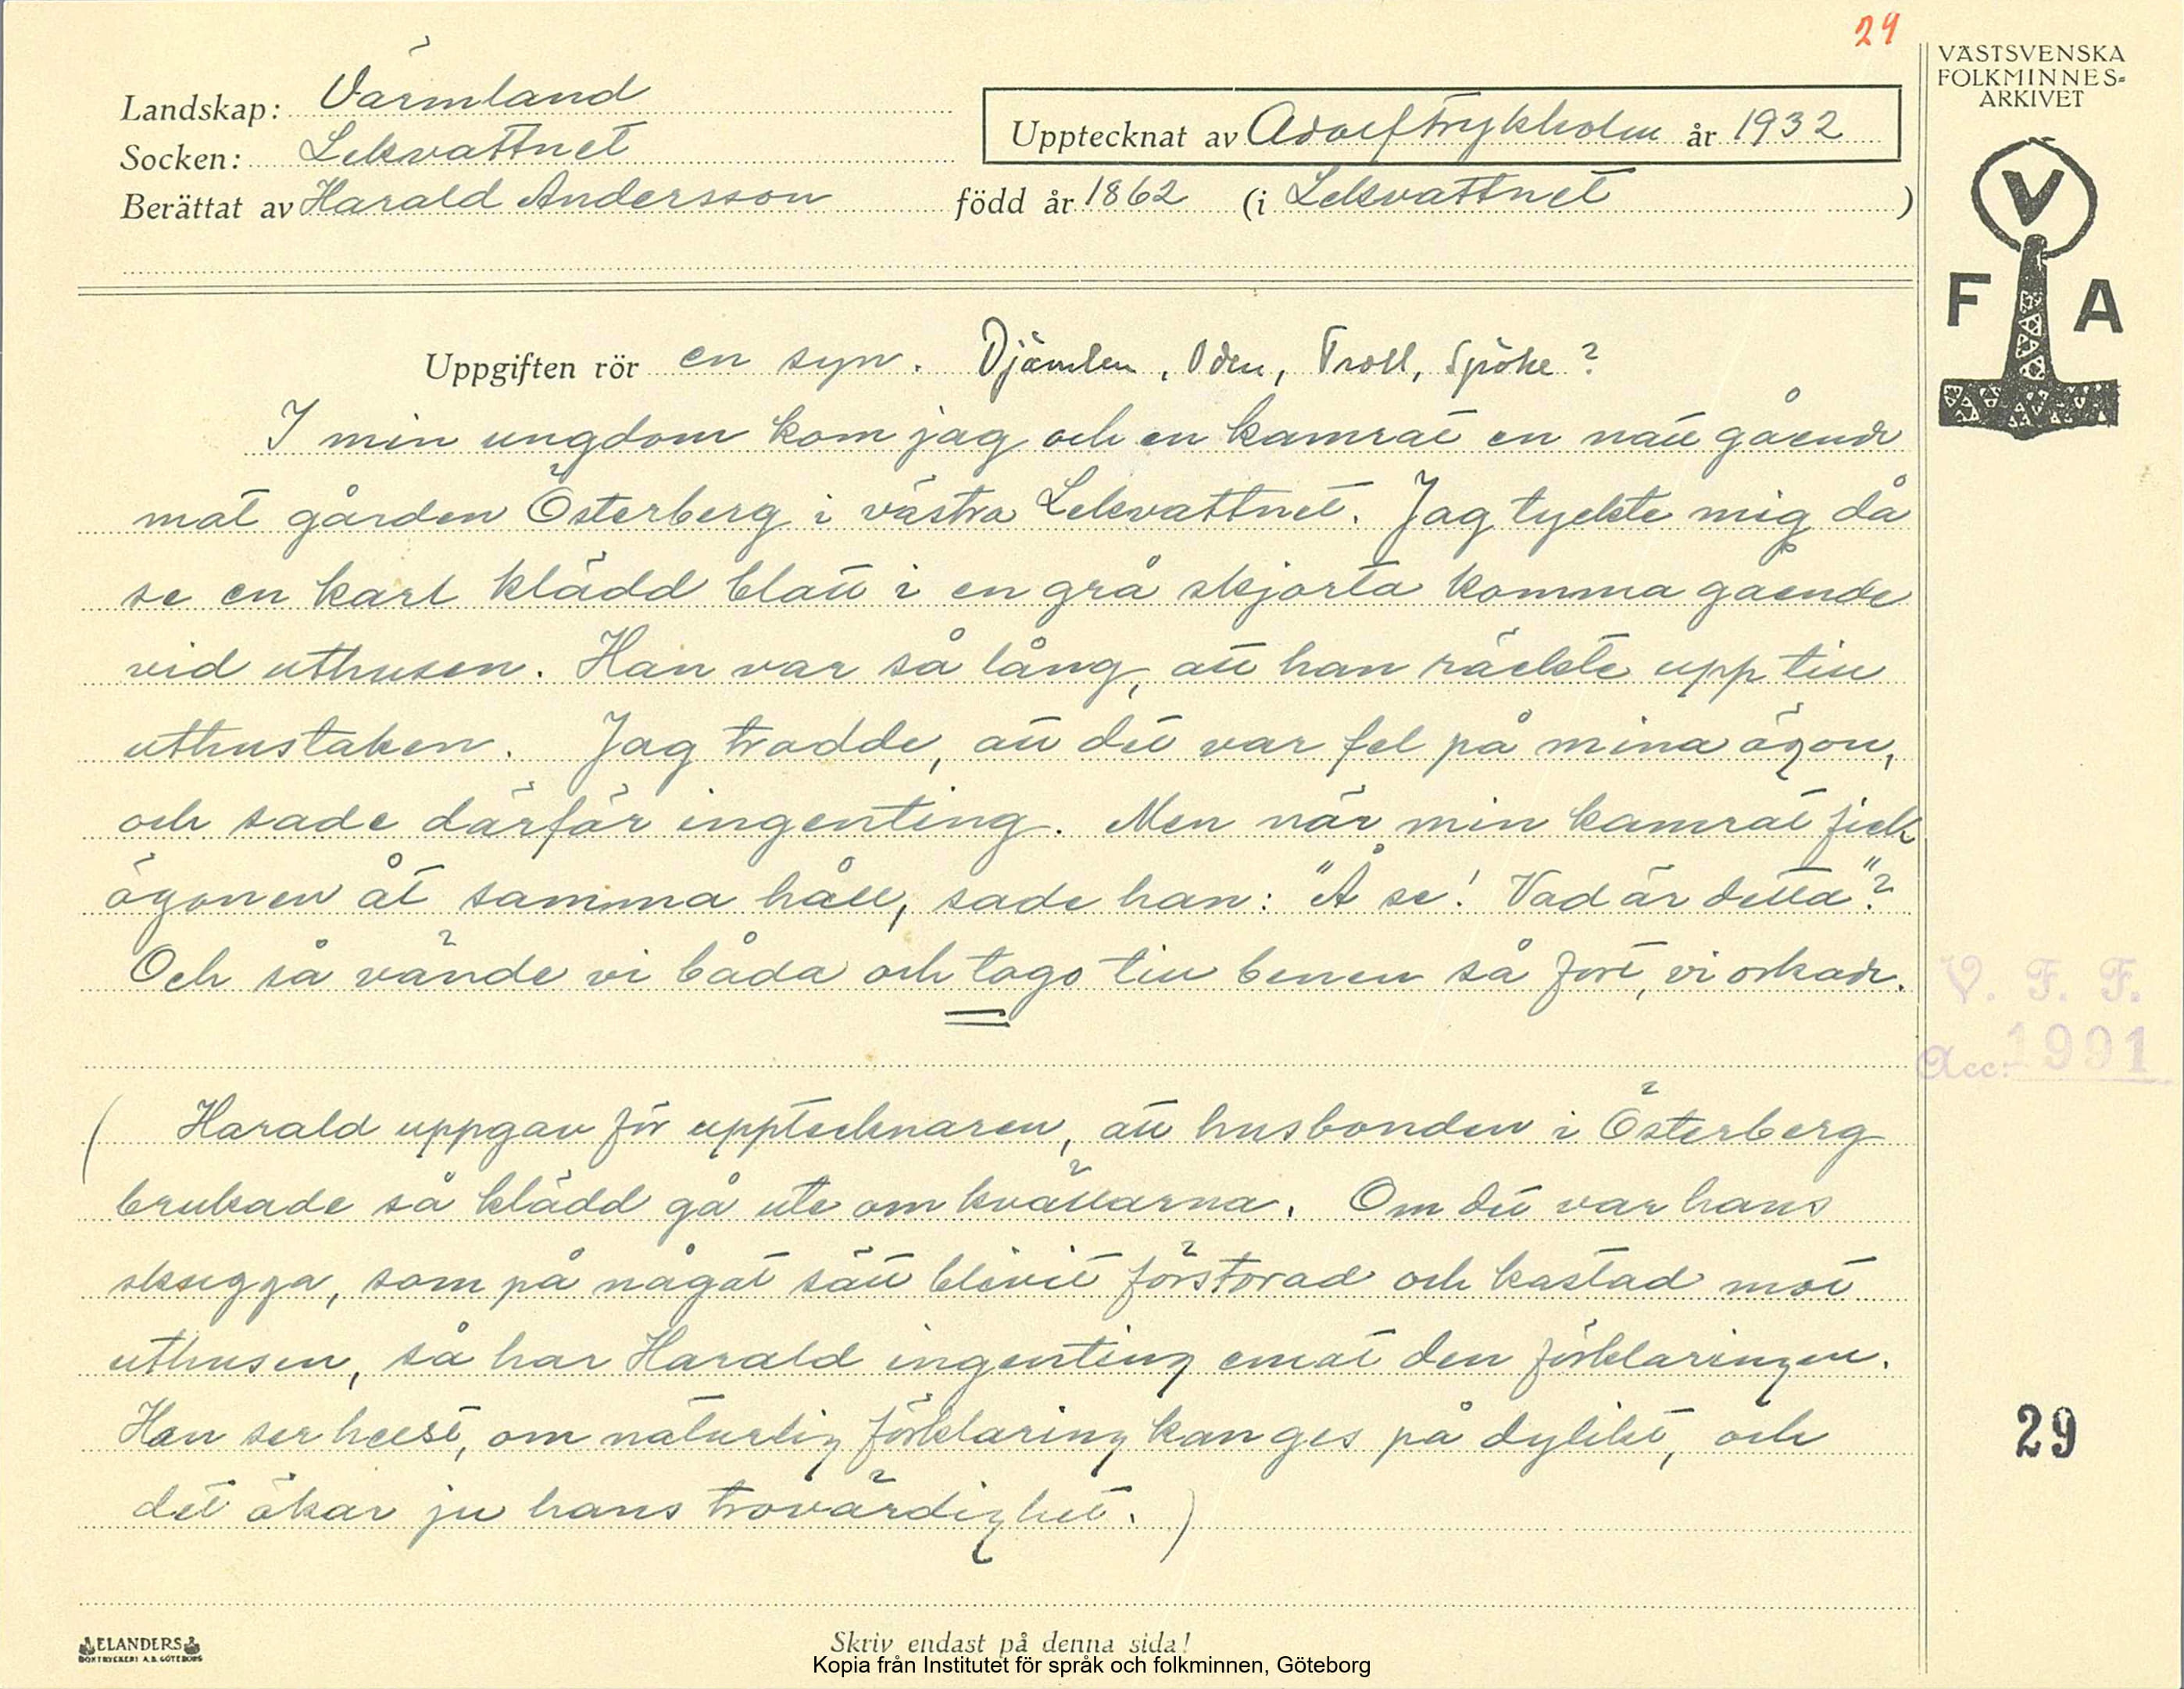 29
VÄSTSVENSKA
FOLKMINNES-
ARKIVET
Landskap: Värmland
Upptecknat av Adolf Frykholm år 1932
Socken: Lekvattnet
Berättat av Harald Andersson född år 1862 (i Lekvattnet)
V
F A
Uppgiften rör en syn. Djävulen, Oden, Troll, Spöke?
I min ungdom kom jag och en kamrat en natt gående
mot gården Österberg i västra Lekvattnet. Jag tyckte mig då
se en karl klädd blott i en grå skjorta komma gående
vid uthusen. Han var så lång, att han räckte upp till
uthustaken. Jag trodde, att det var fel på mina ögon,
och sade därför ingenting. Men när min kamrat fick
ögonen åt samma håll, sade han: "Å se! Vad är detta"?
Och så vände vi båda och togo till benen så fort, vi orkade.
V. F. F.
Acc: 1991
( Harald uppgav för upptecknaren, att husbonden i Österberg
brukade så klädd gå ute om kvällarna. Om det var hans
skugga, som på något sätt blivit förstorad och kastad mot
uthusen, så har Harald ingenting emot den förklaringen.
Han ser helst, om naturlig förklaring kan ges på dylikt, och
det ökar ju hans trovärdighet. )
29
ELANDERS
BOKTRYCKERI A.B. GÖTEBORG
Skriv endast på denna sida!
Kopia från Institutet för språk och folkminnen, Göteborg